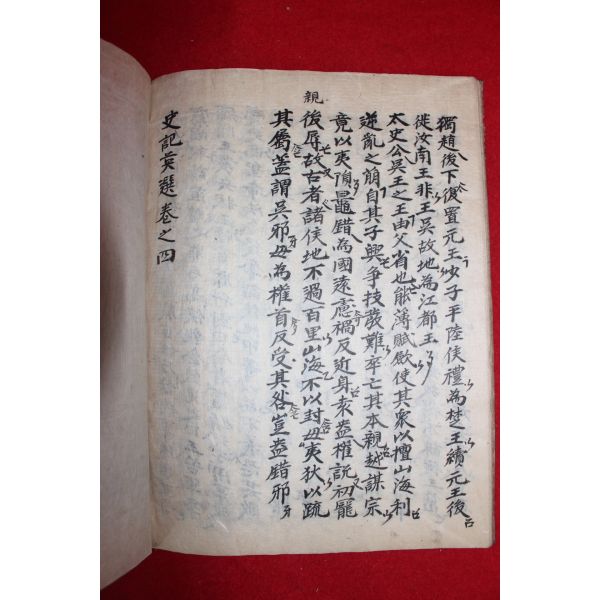 獨趙後下復置元王少子平陸侯禮為楚王續元王後
徙汝南王非王吳故地為江都王
太史公吳王之王由父省也能薄賦歛使其衆以擅山海利
逆亂之崩自其子興爭技發難卒亡其本親越謀宗
竟以夷隕鼂錯為國遠慮禍反近身袁盎權說初寵
親
後辱故古者諸侯地不過百里山海不以封毋夷狄以疏
其屬盖謂吳邪毋為權首反受其咎豈盎錯邪
史記英選卷之四